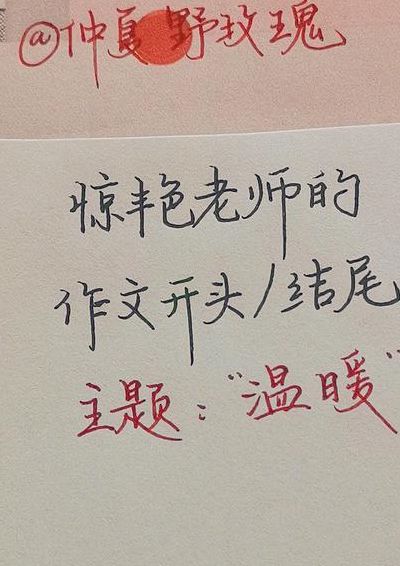 @仲夏野玫瑰
惊艳老师的
作文开头/结尾
主题："温暖"